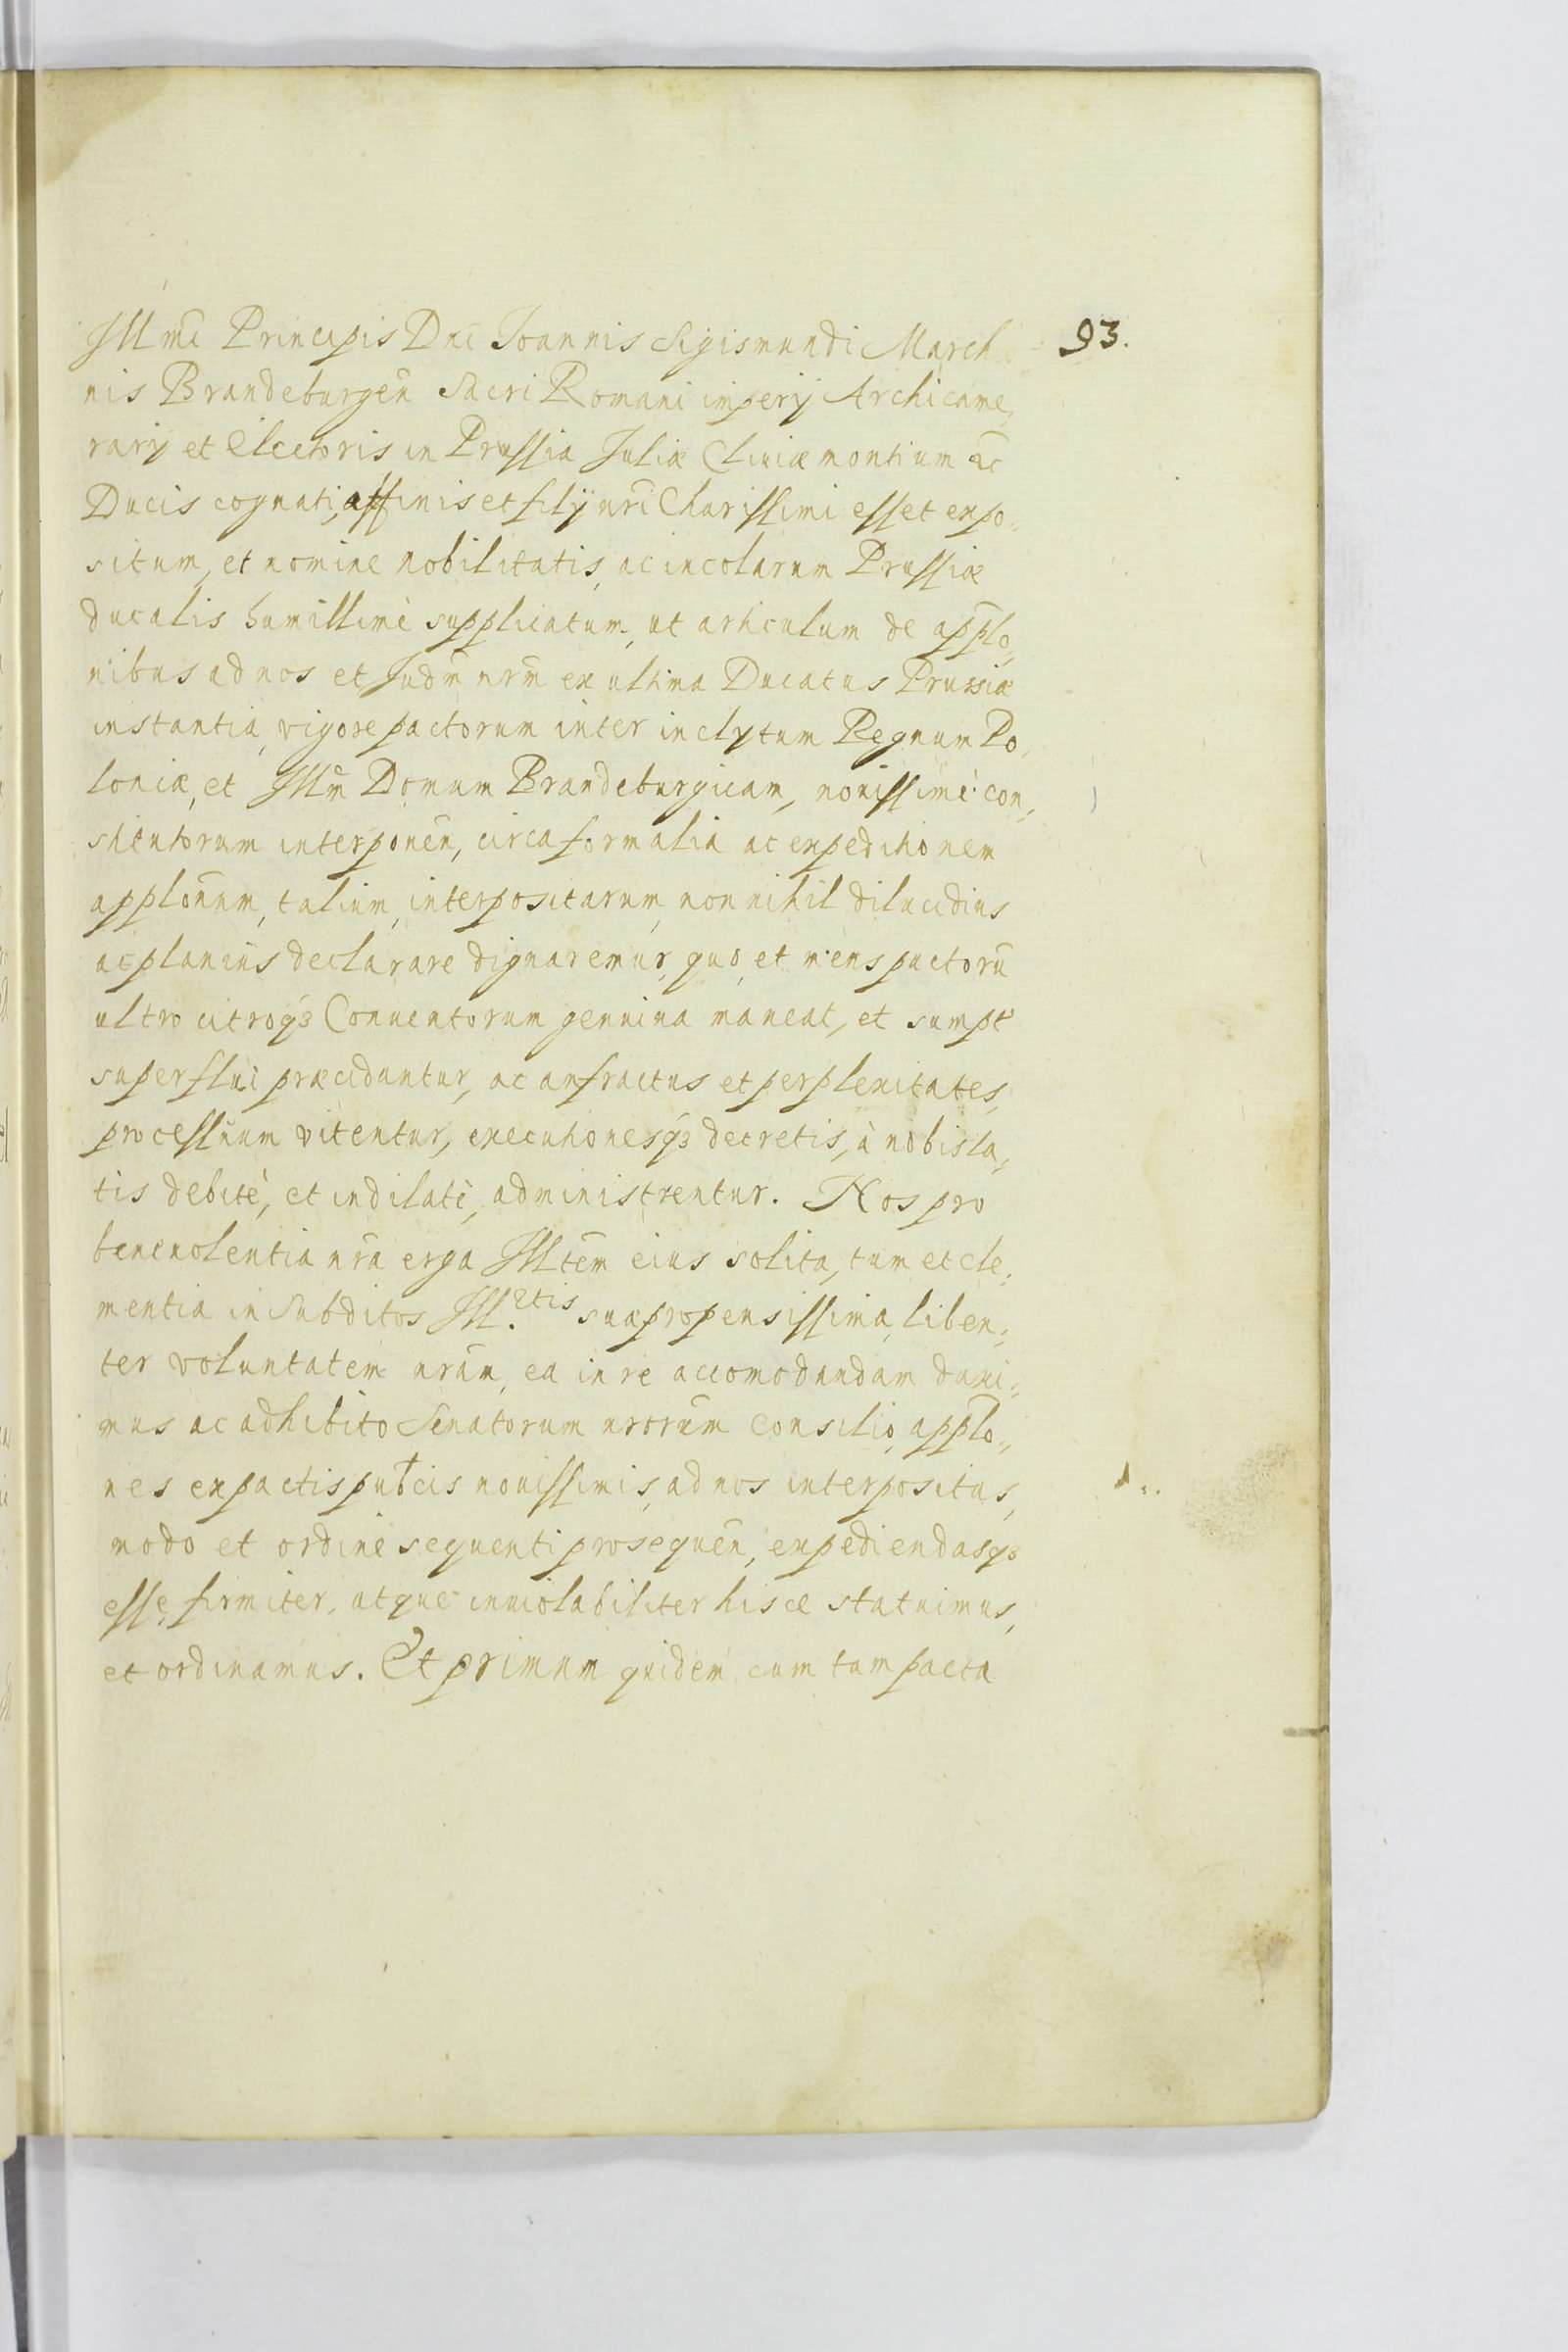 Illmi Principis Dni Joannis Sigismundi March
93.
nis Brandeburgen̄ Sacri Romani imperij Archicame,,
rarij et Electoris in Prussia Juliæ Cliuiæ montium ac
Ducis cognati, affinis et filij nri Charissimi esset expo,,
situm, et nomine nobilitatis, ac incolarum Prussiæ
ducalis humillimè supplicatum, ut articulum de applo,,
nibus ad nos et Judm nrm ex ultima Ducatus Prussiæ
instantia, vigore pactorum inter inclytum Regnum Po,,
loniæ, et Illm Domum Brandeburgicam, nouissimè con,,
uentorum interponen̄, circa formalia ac expeditionem
applonum, talium, interpositarum, nonnihil dilucidius
ac planius declarare dignaremur, quo, et mens pactorū
ultro citroqз Conuentorum genuina maneat, et sumpt9
superflui præcidantur, ac anfractus et perplexitates,
processuum vitentur, executionesqз decretis, à nobis la,,
tis debitè, et indilatè, administrentur. Nos pro
beneuolentia nra erga Illtem eius solita, tum et cle,,
mentia in Subditos Ill.etis suæ propensissima, liben,,
ter voluntatem nram, ea in re accomodandam duxi,,
mus ac adhibito Senatorum nrorum consilio, applo,,
nes ex pactis publcis nouissimis, ad nos interpositas,
modo et ordine sequenti prosequen̄, expediendasqз
esse, firmiter, atque inuiolabiliter hisce statuimus,
et ordinamus. Et primum quidem cum tam pacta